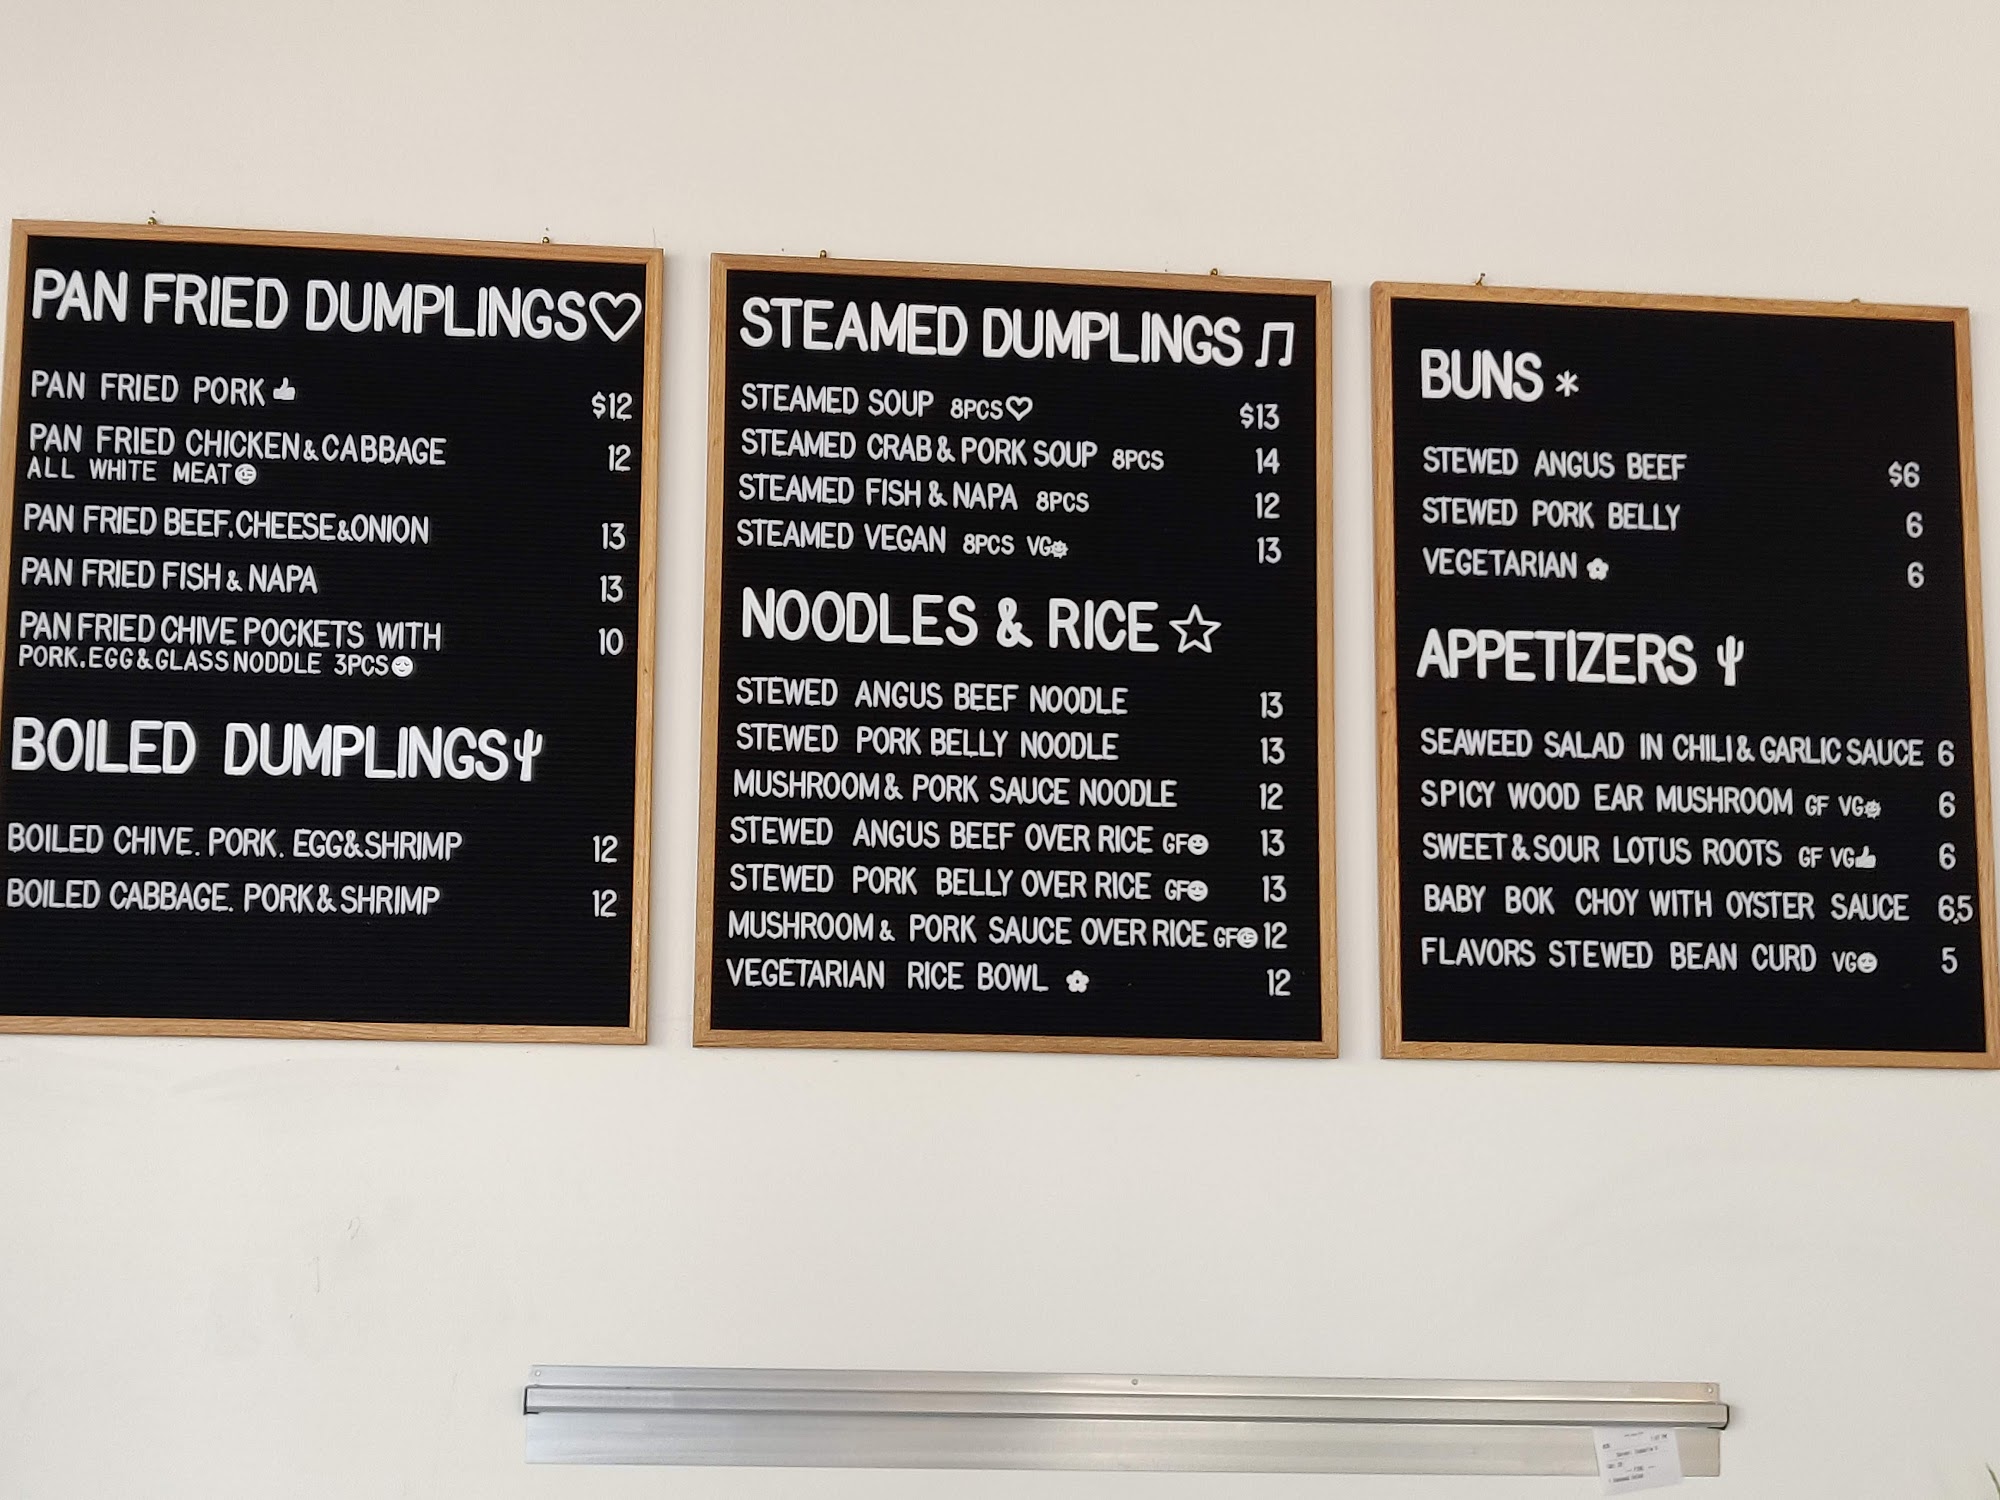 PAN FRIED DUMPLINGS♡
PAN FRIED PORK $12
PAN FRIED CHICKEN & CABBAGE 12
ALL WHITE MEAT
PAN FRIED BEEF. CHEESE & ONION 13
PAN FRIED FISH & NAPA 13
PAN FRIED CHIVE POCKETS WITH 10
PORK. EGG & GLASS NODDLE 3PCS
BOILED DUMPLINGS
BOILED CHIVE. PORK. EGG & SHRIMP 12
BOILED CABBAGE. PORK & SHRIMP 12
STEAMED DUMPLINGS ♫
STEAMED SOUP 8PCS♡ $13
STEAMED CRAB & PORK SOUP 8PCS 14
STEAMED FISH & NAPA 8PCS 12
STEAMED VEGAN 8PCS VG 13
NOODLES & RICE ☆
STEWED ANGUS BEEF NOODLE 13
STEWED PORK BELLY NOODLE 13
MUSHROOM & PORK SAUCE NOODLE 12
STEWED ANGUS BEEF OVER RICE GF 13
STEWED PORK BELLY OVER RICE GF 13
MUSHROOM & PORK SAUCE OVER RICE GF 12
VEGETARIAN RICE BOWL 12
BUNS *
STEWED ANGUS BEEF $6
STEWED PORK BELLY 6
VEGETARIAN 6
APPETIZERS
SEAWEED SALAD IN CHILI & GARLIC SAUCE 6
SPICY WOOD EAR MUSHROOM GF VG 6
SWEET & SOUR LOTUS ROOTS GF VG 6
BABY BOK CHOY WITH OYSTER SAUCE 6.5
FLAVORS STEWED BEAN CURD VG 5